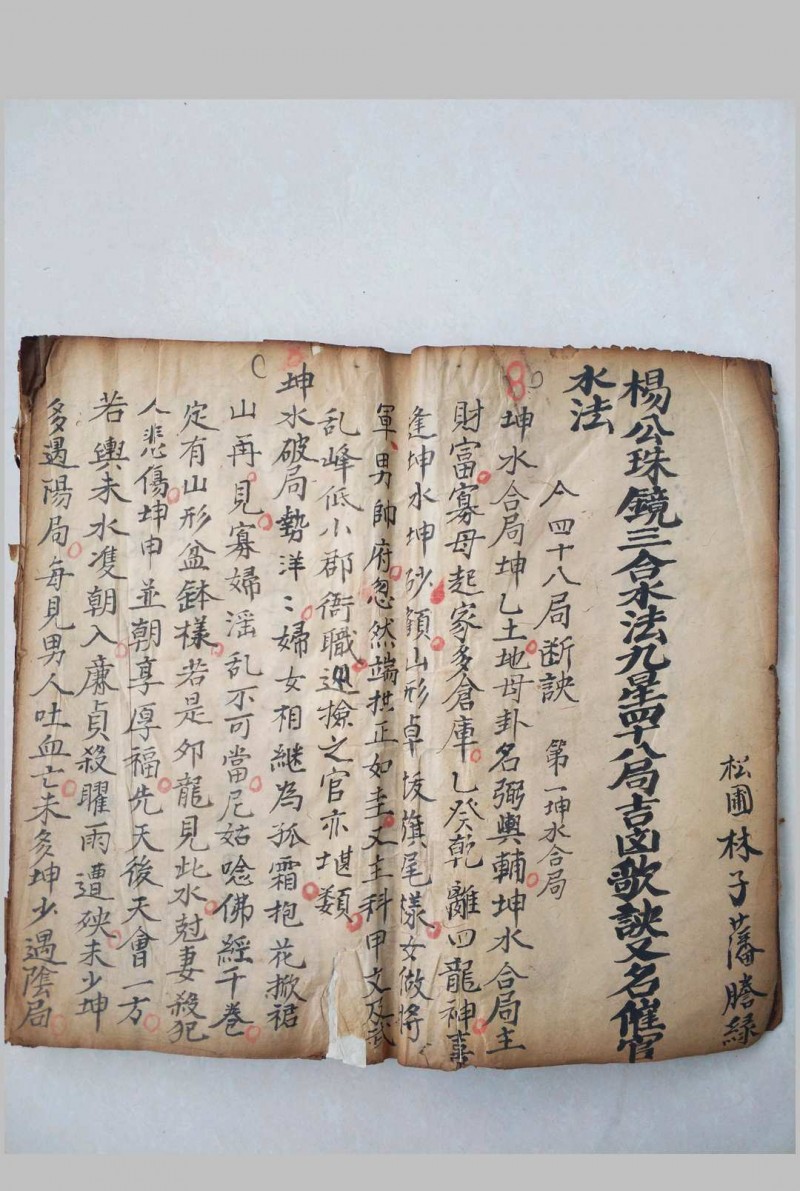 松圃林子藩謄綠
楊公珠鏡三合水法九星四十八局吉凶歌訣又名催官
水法
仝四十八局断訣 第一坤水合局
坤水合局坤乙土地母卦名弼輿輔坤水合局主
財富寡母起家多倉庫乙癸乾離四龍神喜
逢坤水坤砂顧山形卓拔旗尾樣女做將
軍男帥府忽然端拱正如圭又主科甲文及武
乱峰低小郡衙職巡撿之官亦堪類
坤水破局勢洋〻婦女相継為孤霜抱花掀裙
山再見寡婦滛乱不可當尼姑唸佛經千巻
定有山形盆鉢樣若是夘龍見此水尅妻殺犯
人悲傷坤申並朝享厚福先天後天會一方
若輿未水䨇朝入亷貞殺曜兩遭殃未少坤
多遇陽局每見男人吐血亡未多坤少遇陰局